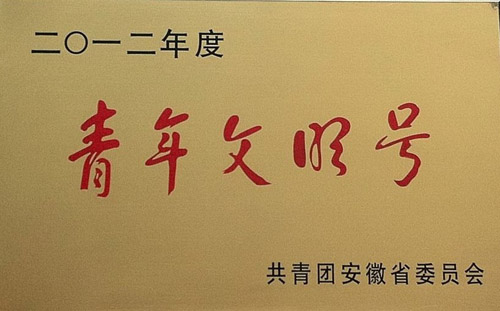 二〇一二年度
青年文明号
共青团安徽省委员会